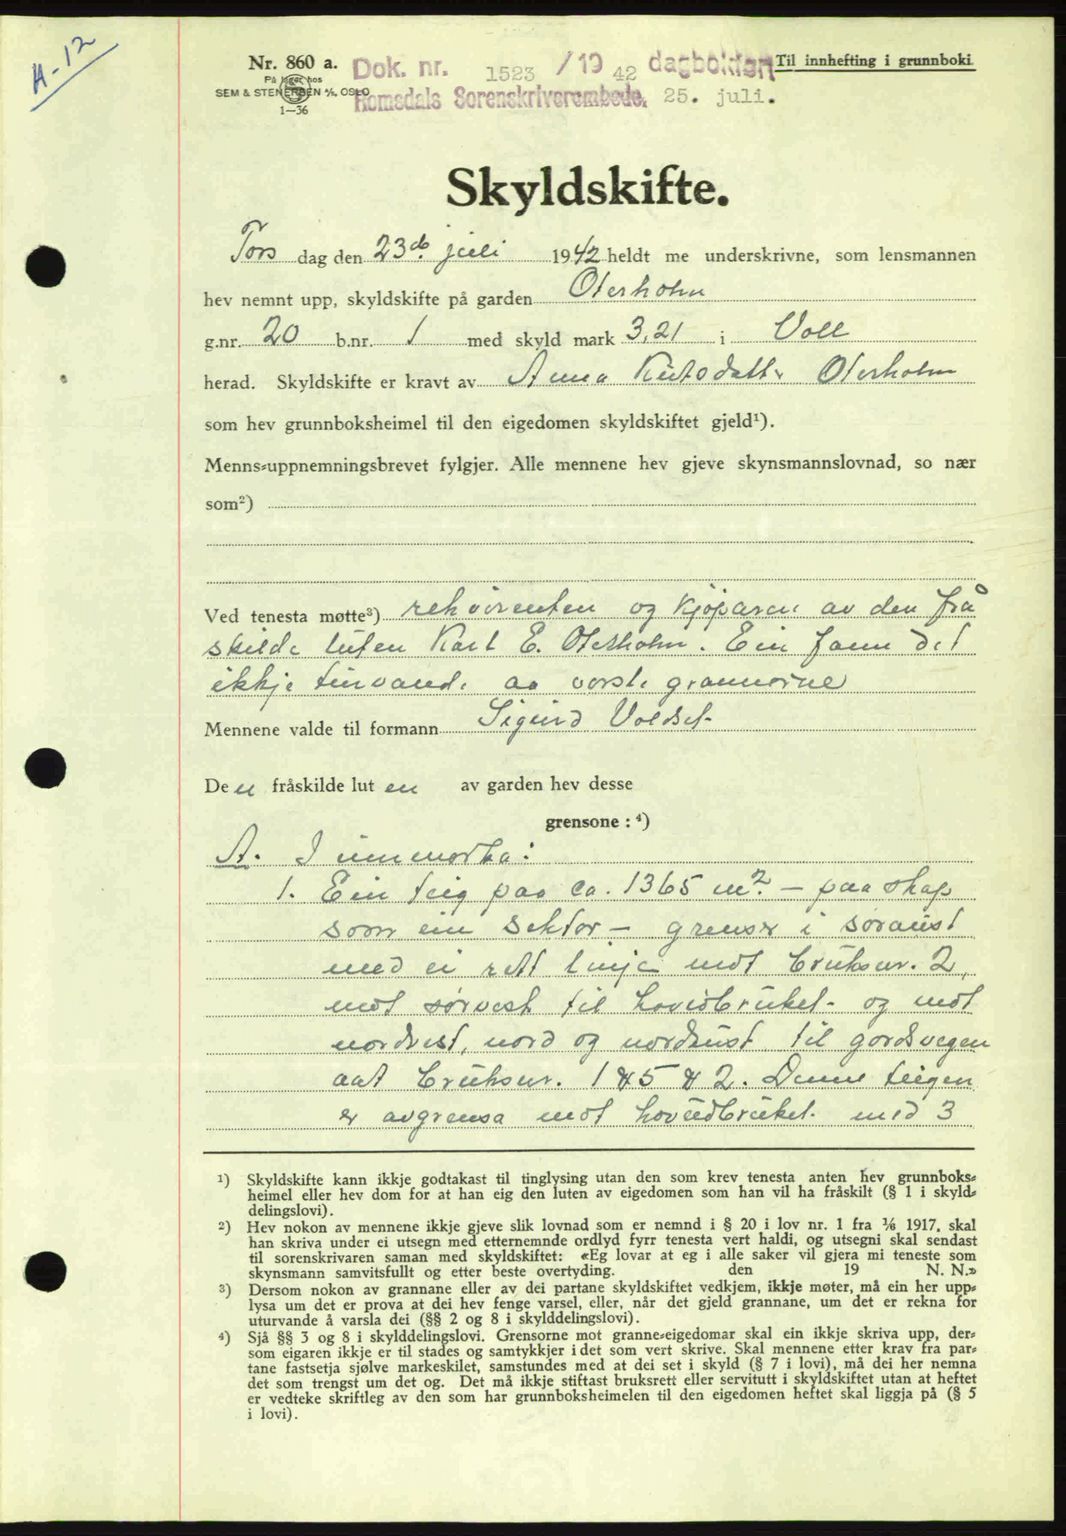 A-12
Nr. 860 a.
På lager hos
SEM & STENERSEN A/S, OSLO
1—36
Dok. nr. 1523 / 19 42 dagbokført
Romsdals Sorenskriverembede. 25. juli.
Til innhefting i grunnboki
Skyldskifte.
Tors dag den 23de juli 1942 heldt me underskrivne, som lensmannen
hev nemnt upp, skyldskifte på garden Oterholm
g.nr. 20 b.nr. 1 med skyld mark 3,21 i Voll
herad. Skyldskifte er kravt av Anna Oterholm
som hev grunnboksheimel til den eigedomen skyldskiftet gjeld¹).
Menns-uppnemningsbrevet fylgjer. Alle mennene hev gjeve skynsmannslovnad, so nær
som²)
Ved tenesta møtte³) rekvirenten og kjøparen av den frå
skilde luten Karl E. Oterholm. Ein fann det
ikkje turvande aa varsle grannarne
Mennene valde til formann Sigurd Voldset
Den fråskilde luten av garden hev desse
grensone : ⁴)
A. I innmorka:
1. Ein teig paa ca. 1365 m² – paa skap
som ein sektor – grensar i søraust
med ei rett linje mot bruksnr. 2,
mot sørvest til hovudbruket og mot
nordvest, nord og nordaust til gardsvegen
aat bruksnr. 1 & 5 & 2. Denne teigen
er avgrensa mot hovudbruket med 3
¹) Skyldskifte kann ikkje godtakast til tinglysing utan den som krev tenesta anten hev grunnboks-
heimel eller hev dom for at han eig den luten av eigedomen som han vil ha fråskilt (§ 1 i skyld-
delingslovi).
²) Hev nokon av mennene ikkje gjeve slik lovnad som er nemnd i § 20 i lov nr. 1 fra 1/6 1917, skal
han skriva under ei utsegn med etternemnde ordlyd fyrr tenesta vert haldi, og utsegni skal sendast
til sorenskrivaren saman med skyldskiftet: «Eg lovar at eg i alle saker vil gjera mi teneste som
skynsmann samvitsfullt og etter beste overtyding. den 19 N. N.»
³) Dersom nokon av grannane eller av dei partane skyldskiftet vedkjem, ikkje møter, må ein her upp-
lysa um det er prova at dei hev fenge varsel, eller, når det gjeld grannane, um det er rekna for
uturvande å varsla dei (§§ 2 og 8 i skylddelingslovi).
⁴) Sjå §§ 3 og 8 i skylddelingslovi. Grensorne mot granne-eigedomar skal ein ikkje skriva upp, der-
som eigaren ikkje er til stades og samtykkjer i det som vert skrive. Skal mennene etter krav fra par-
tane fastsetja sjølve markeskilet, samstundes med at dei set i skyld (§ 7 i lovi), må dei her nemna
det som trengst um det og. Det må ikkje stiftast bruksrett eller servitutt i skyldskiftet utan at heftet
er vedteke skriftleg av den som har grunnboksheimelen til den eigedomen heftet skal liggja på (§ 5
i lovi).